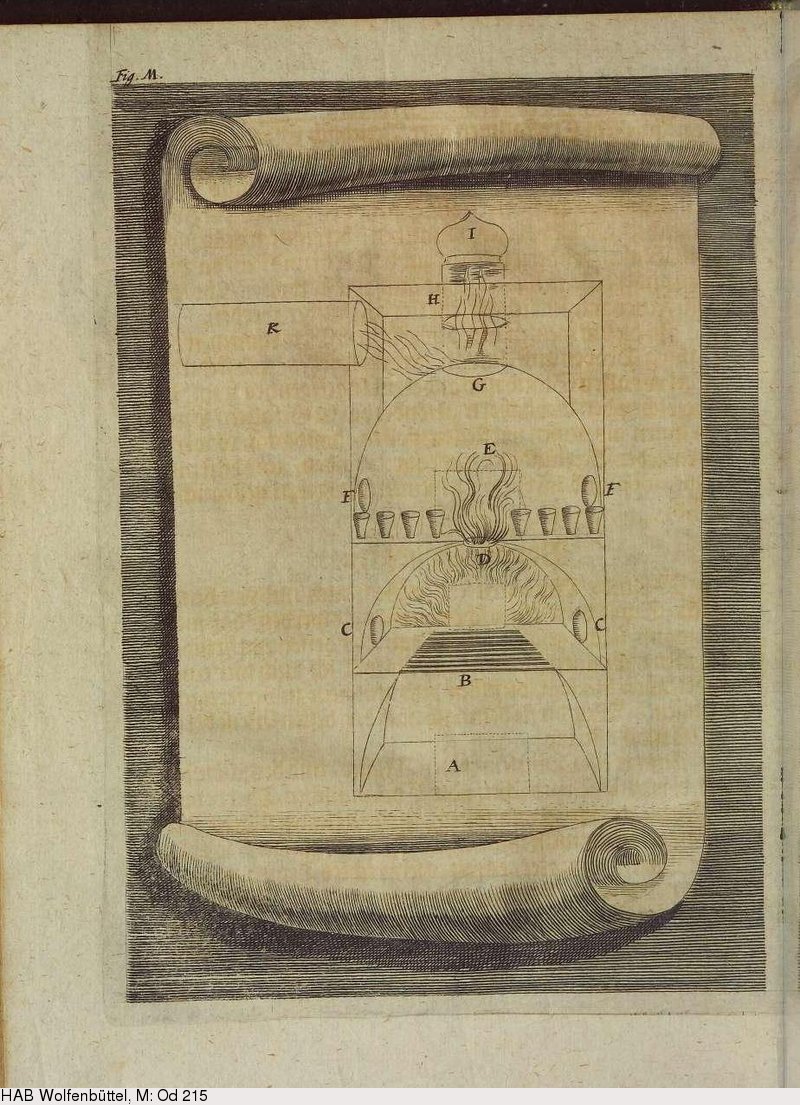 Fig. M.
I
H
K
G
E
F F
D
C C
B
A
HAB Wolfenbüttel, M: Od 215